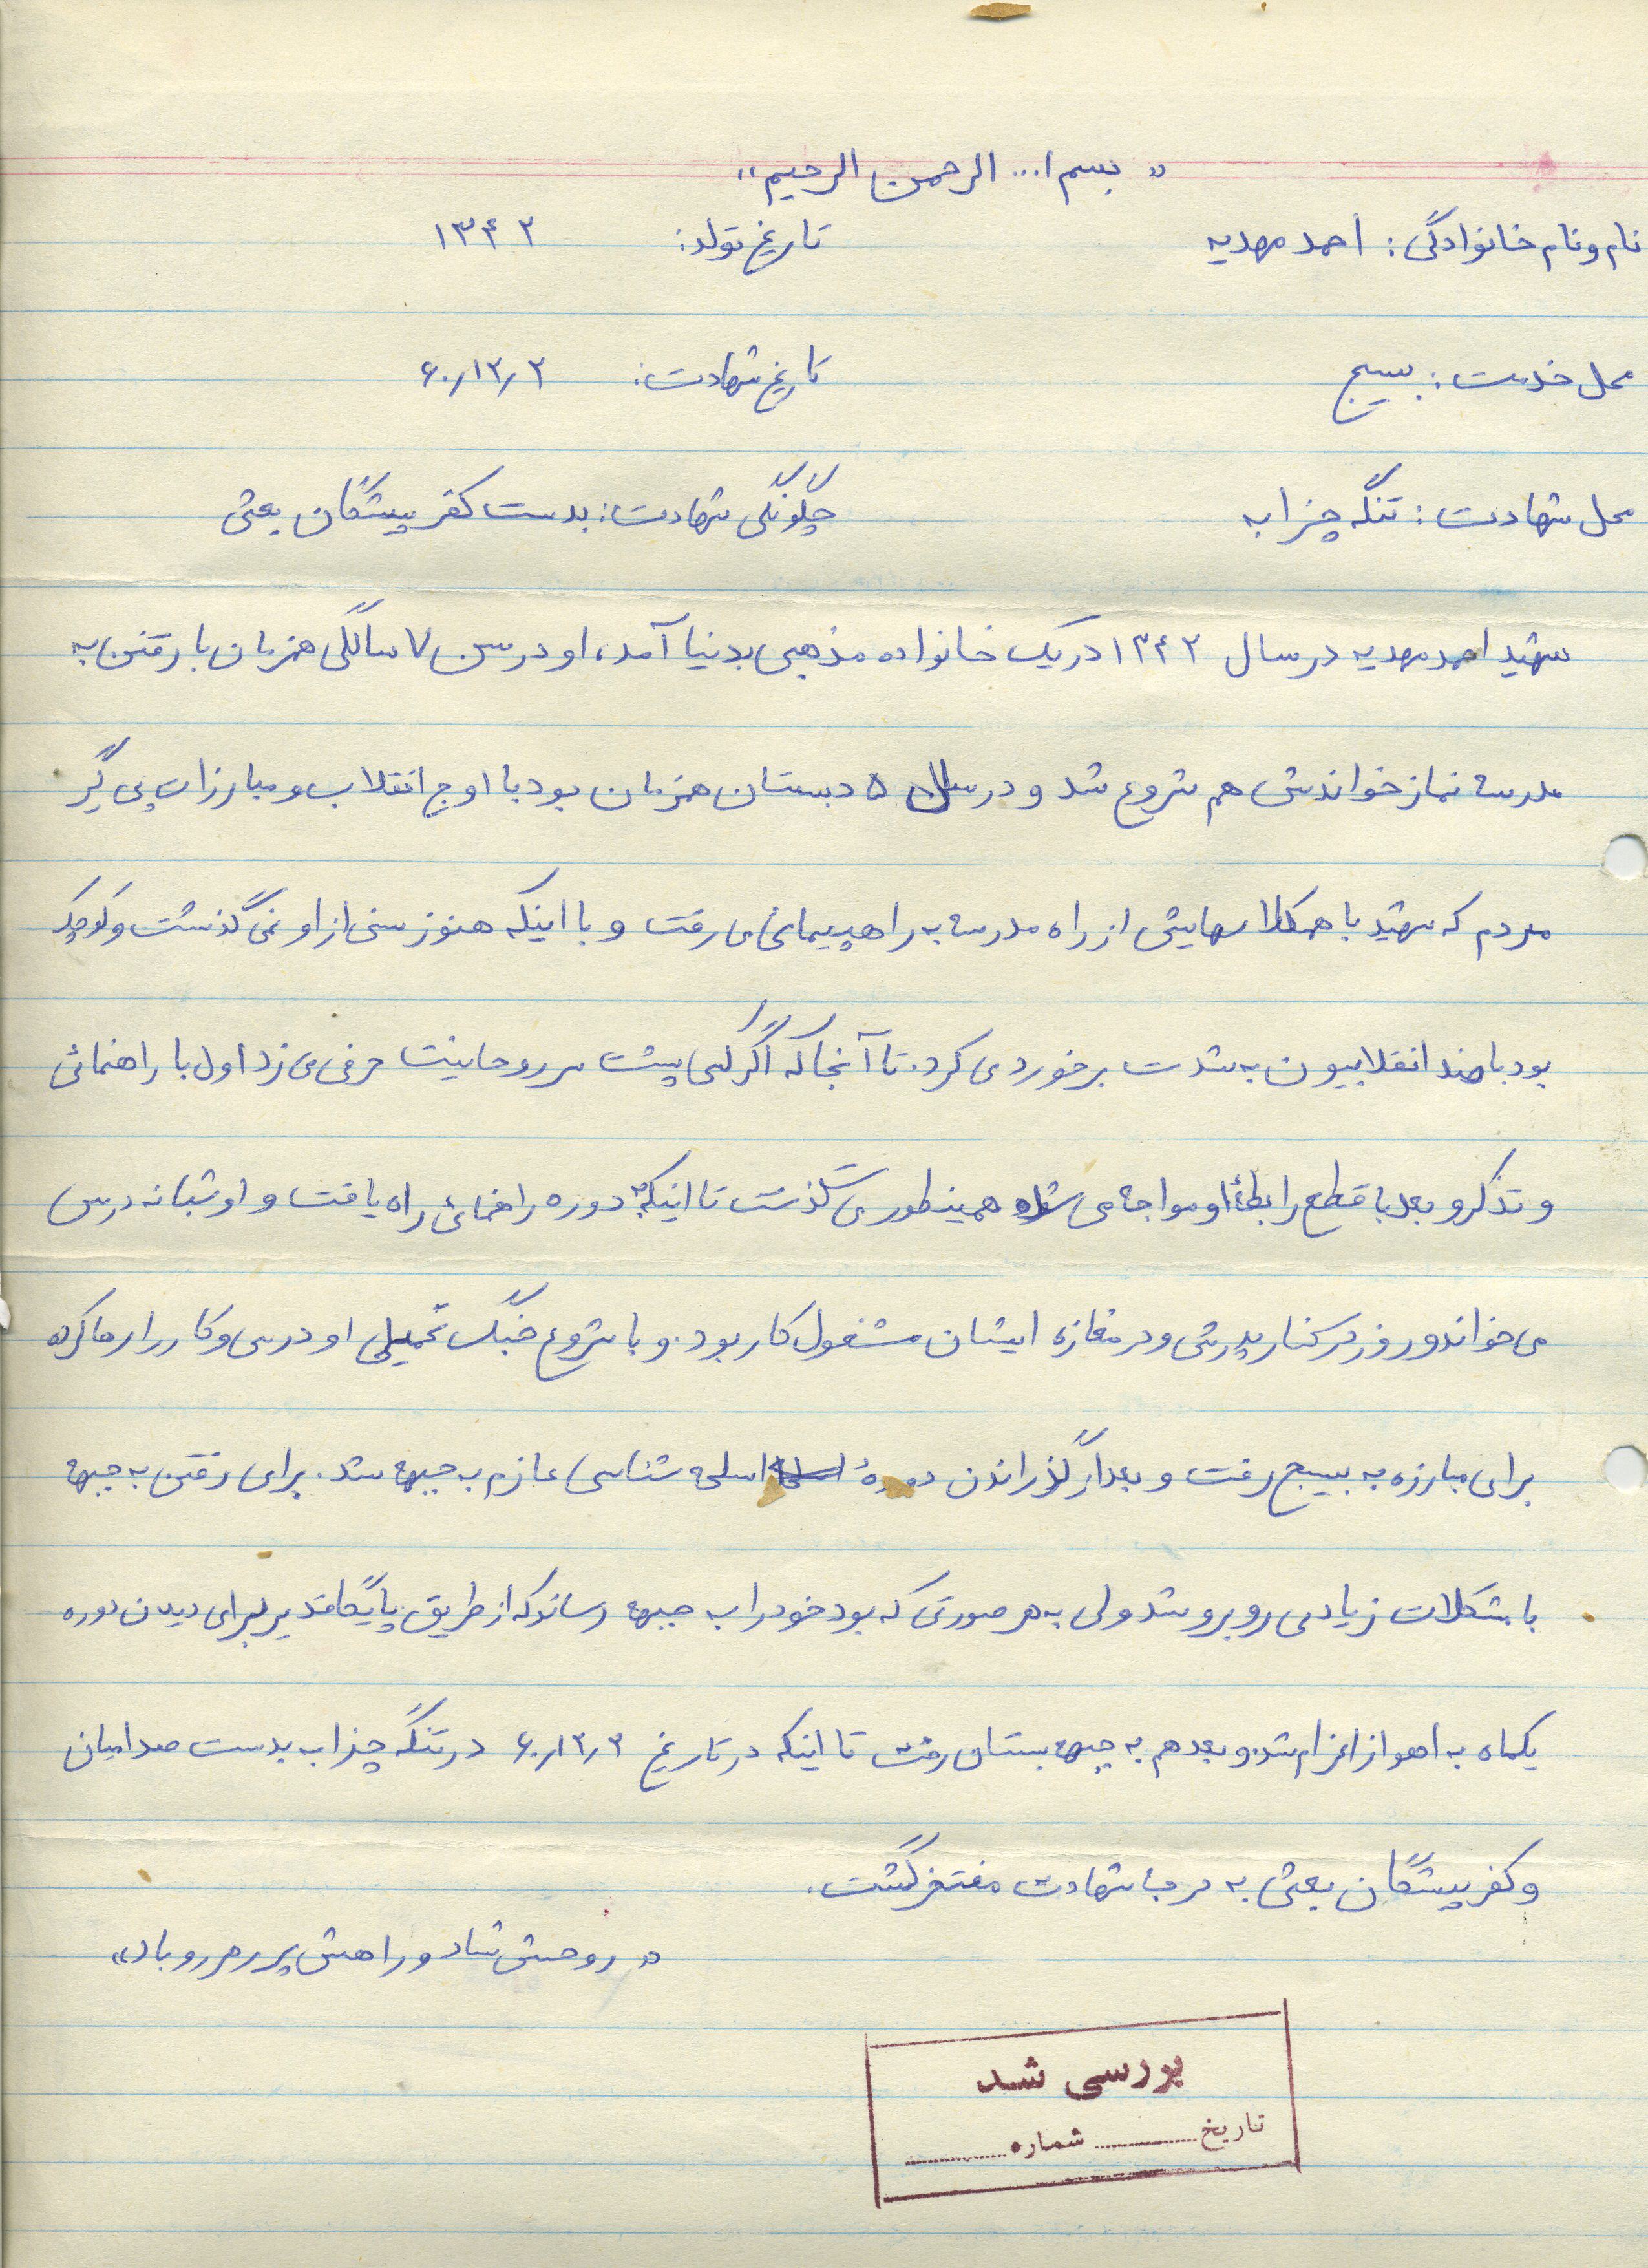 « بسم ا... الرحمن الرحیم »
نام و نام خانوادگی : احمد مهدیه تاریخ تولد : ۱۳۴۲
محل خدمت : بسیج تاریخ شهادت : ۶۰/۱۲/۲
محل شهادت : تنگه چزابه چگونگی شهادت : بدست کفر پیشگان بعثی
شهید احمد مهدیه در سال ۱۳۴۲ در یک خانواده مذهبی بدنیا آمد، او در سن ۷ سالگی همزمان با رفتن به
مدرسه نماز خواندنش هم شروع شد و در سال ۵ دبستان همزمان بود با اوج انقلاب و مبارزات پی گیر
مردم که شهید با همکلاسهایش از راه مدرسه به راهپیمائی می رفت و با اینکه هنوز سنی از او نمی گذشت و کوچک
بود با ضد انقلابیون به شدت برخورد می کرد. تا آنجا که اگر کسی پشت سر روحانیت حرفی می زد اول با راهنمائی
و تذکر و بعد با قطع رابطه او مواجه می شد همینطور می گذشت تا اینکه به دوره راهنمائی راه یافت و او شبانه درس
می خواند و روز در کنار پدرش و در مغازه ایشان مشغول کار بود. و با شروع جنگ تحمیلی او درس و کار را رها کرده
برای مبارزه به بسیج رفت و بعد از گذراندن دوره اسلحه شناسی عازم به جبهه شد. برای رفتن به جبهه
با مشکلات زیادی روبرو شد ولی به هر صورتی که بود خود را به جبهه رساند که از طریق پایگاه برای دیدن دوره
یکماه به اهواز اعزام شد. و بعد هم به جبهه بستان رفت تا اینکه در تاریخ ۶۰/۱۲/۲ در تنگه چزابه بدست صدامیان
و کفر پیشگان بعثی به درجه شهادت مفتخر گشت.
« روحش شاد و راهش پر رهرو باد »
بررسی شد
تاریخ ........ شماره ........